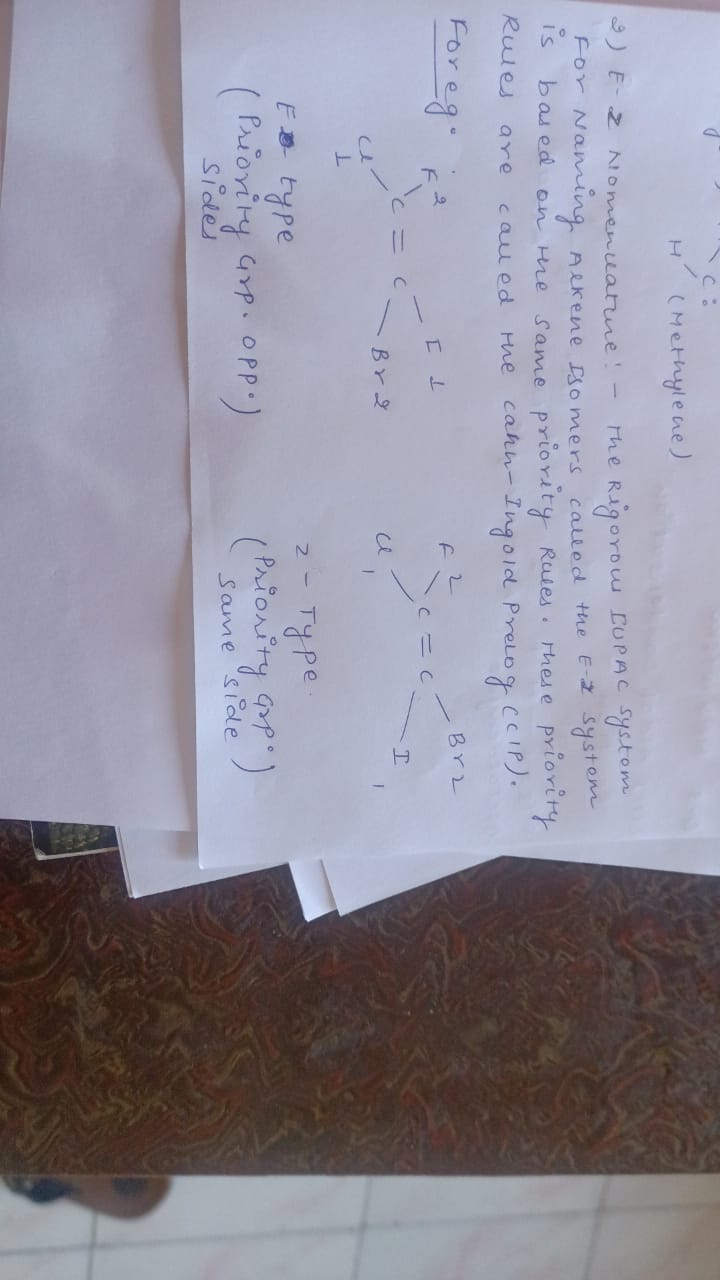 C:
H (Methylene)
2) E-Z Nomenclature:- The Rigorous IUPAC system
For Naming Alkene Isomers called the E-Z system
is based on the same priority Rules. These priority
Rules are called the Cahn-Ingold Prelog (CIP).
For eg. F 2 I 1 F 2 Br 2
C = C C = C
Cl 1 Br 2 Cl 1 I 1
E - type Z - Type.
(Priority Grp. opp.) (Priority Grp.)
Sides same side